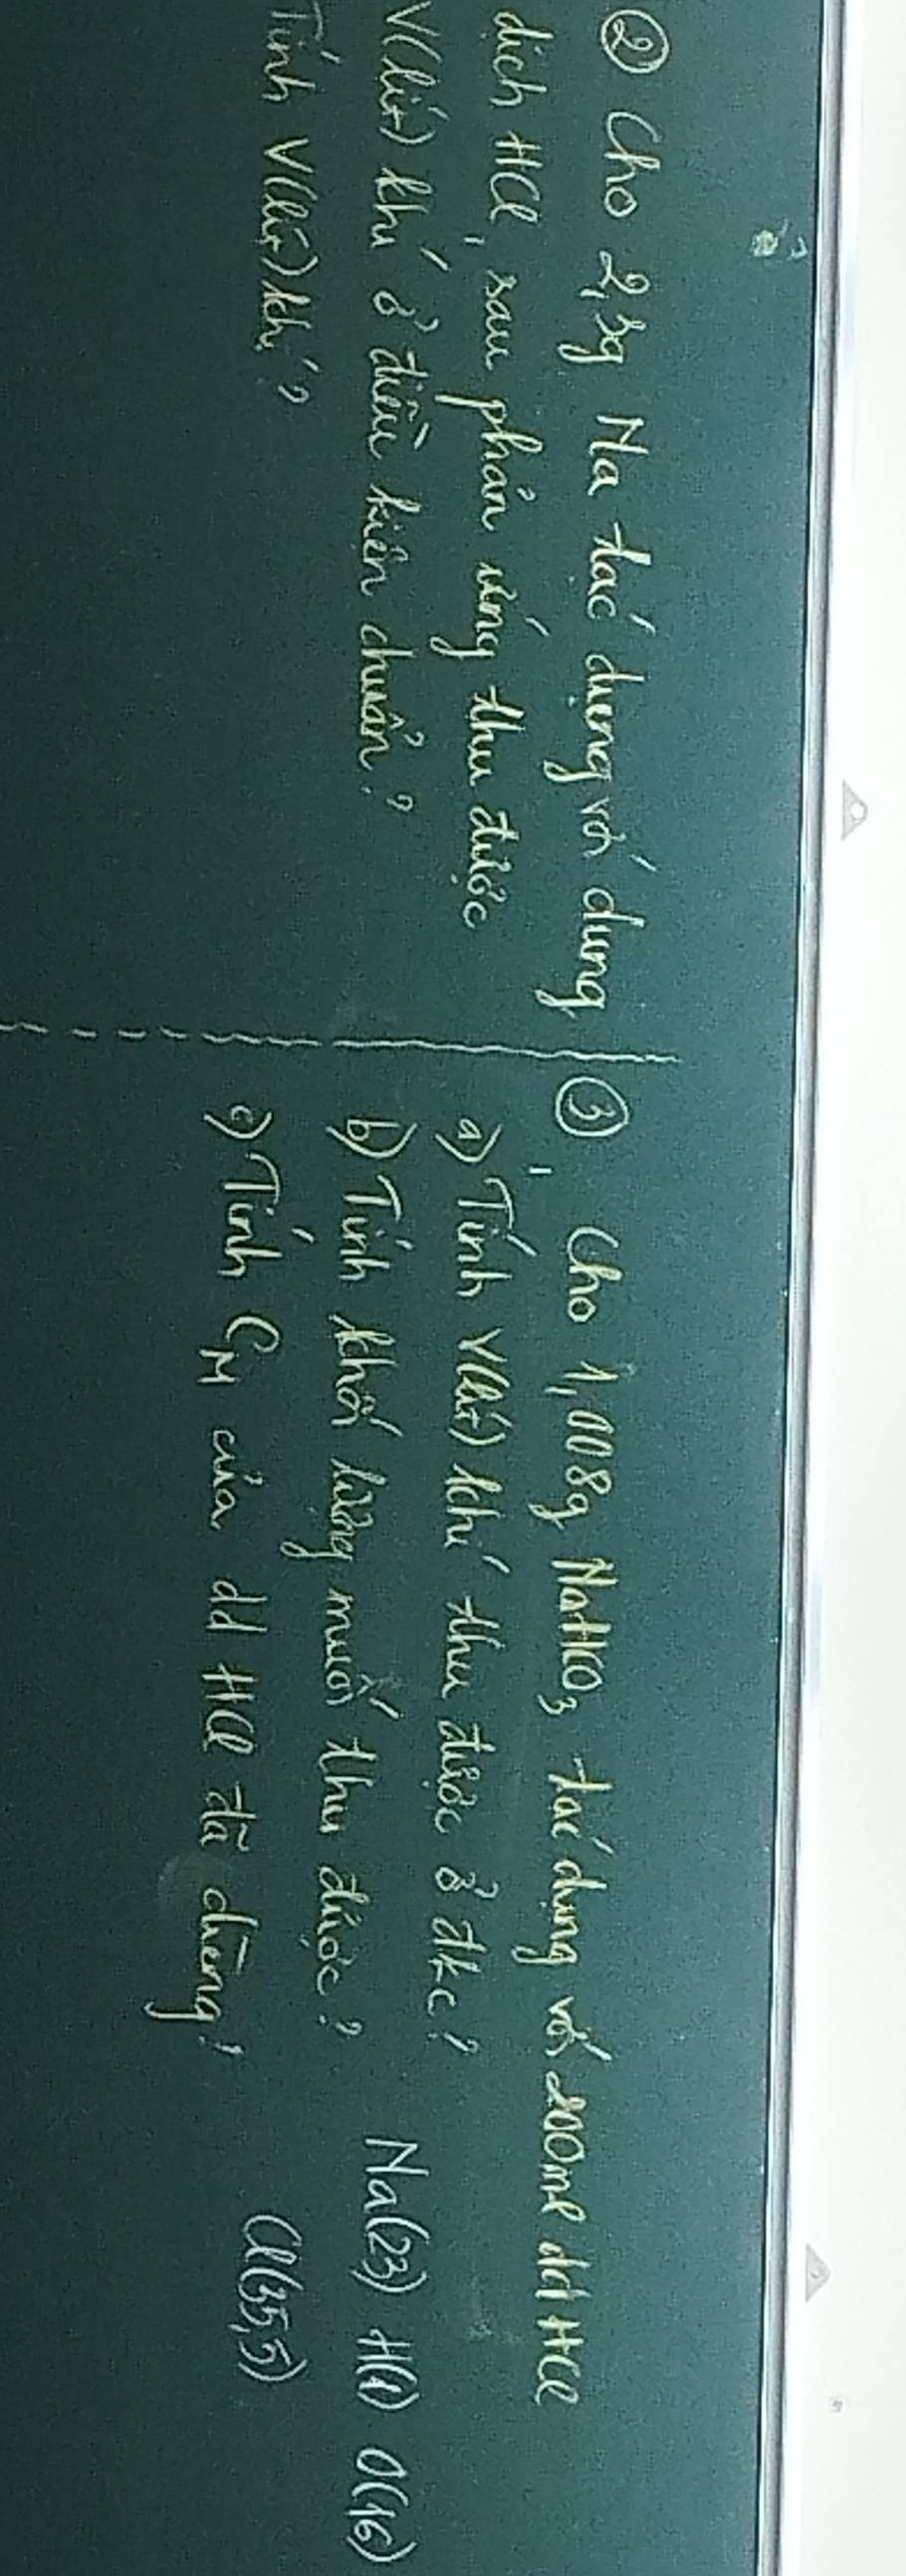 ② Cho 2,3g Na tác dụng với dung
dịch HCl, sau phản ứng thu được
V(lít) khí ở điều kiện chuẩn?
Tính V(lít) khí?
③ Cho 1,008g NaHCO₃ tác dụng với 200ml dd HCl
a) Tính V(lít) khí thu được ở đkc?
b) Tính khối lượng muối thu được?
c) Tính C_M của dd HCl đã dùng!
Na(23) H(1) O(16)
Cl(35,5)